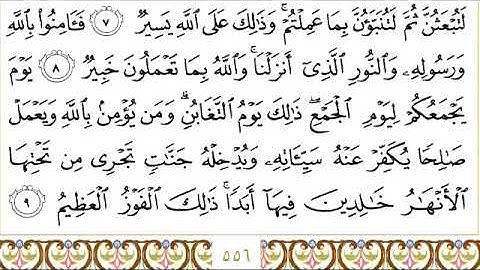 لَتُبۡعَثُنَّ ثُمَّ لَتُنَبَّؤُنَّ بِمَا عَمِلۡتُمۡۚ وَذَٰلِكَ عَلَى ٱللَّهِ يَسِيرٞ ٧ فَـَٔامِنُواْ بِٱللَّهِ
وَرَسُولِهِۦ وَٱلنُّورِ ٱلَّذِيٓ أَنزَلۡنَاۚ وَٱللَّهُ بِمَا تَعۡمَلُونَ خَبِيرٞ ٨ يَوۡمَ
يَجۡمَعُكُمۡ لِيَوۡمِ ٱلۡجَمۡعِۖ ذَٰلِكَ يَوۡمُ ٱلتَّغَابُنِۗ وَمَن يُؤۡمِنۢ بِٱللَّهِ وَيَعۡمَلۡ
صَٰلِحٗا يُكَفِّرۡ عَنۡهُ سَيِّـَٔاتِهِۦ وَيُدۡخِلۡهُ جَنَّٰتٖ تَجۡرِي مِن تَحۡتِهَا
ٱلۡأَنۡهَٰرُ خَٰلِدِينَ فِيهَآ أَبَدٗاۚ ذَٰلِكَ ٱلۡفَوۡزُ ٱلۡعَظِيمُ ٩
٥٥٦